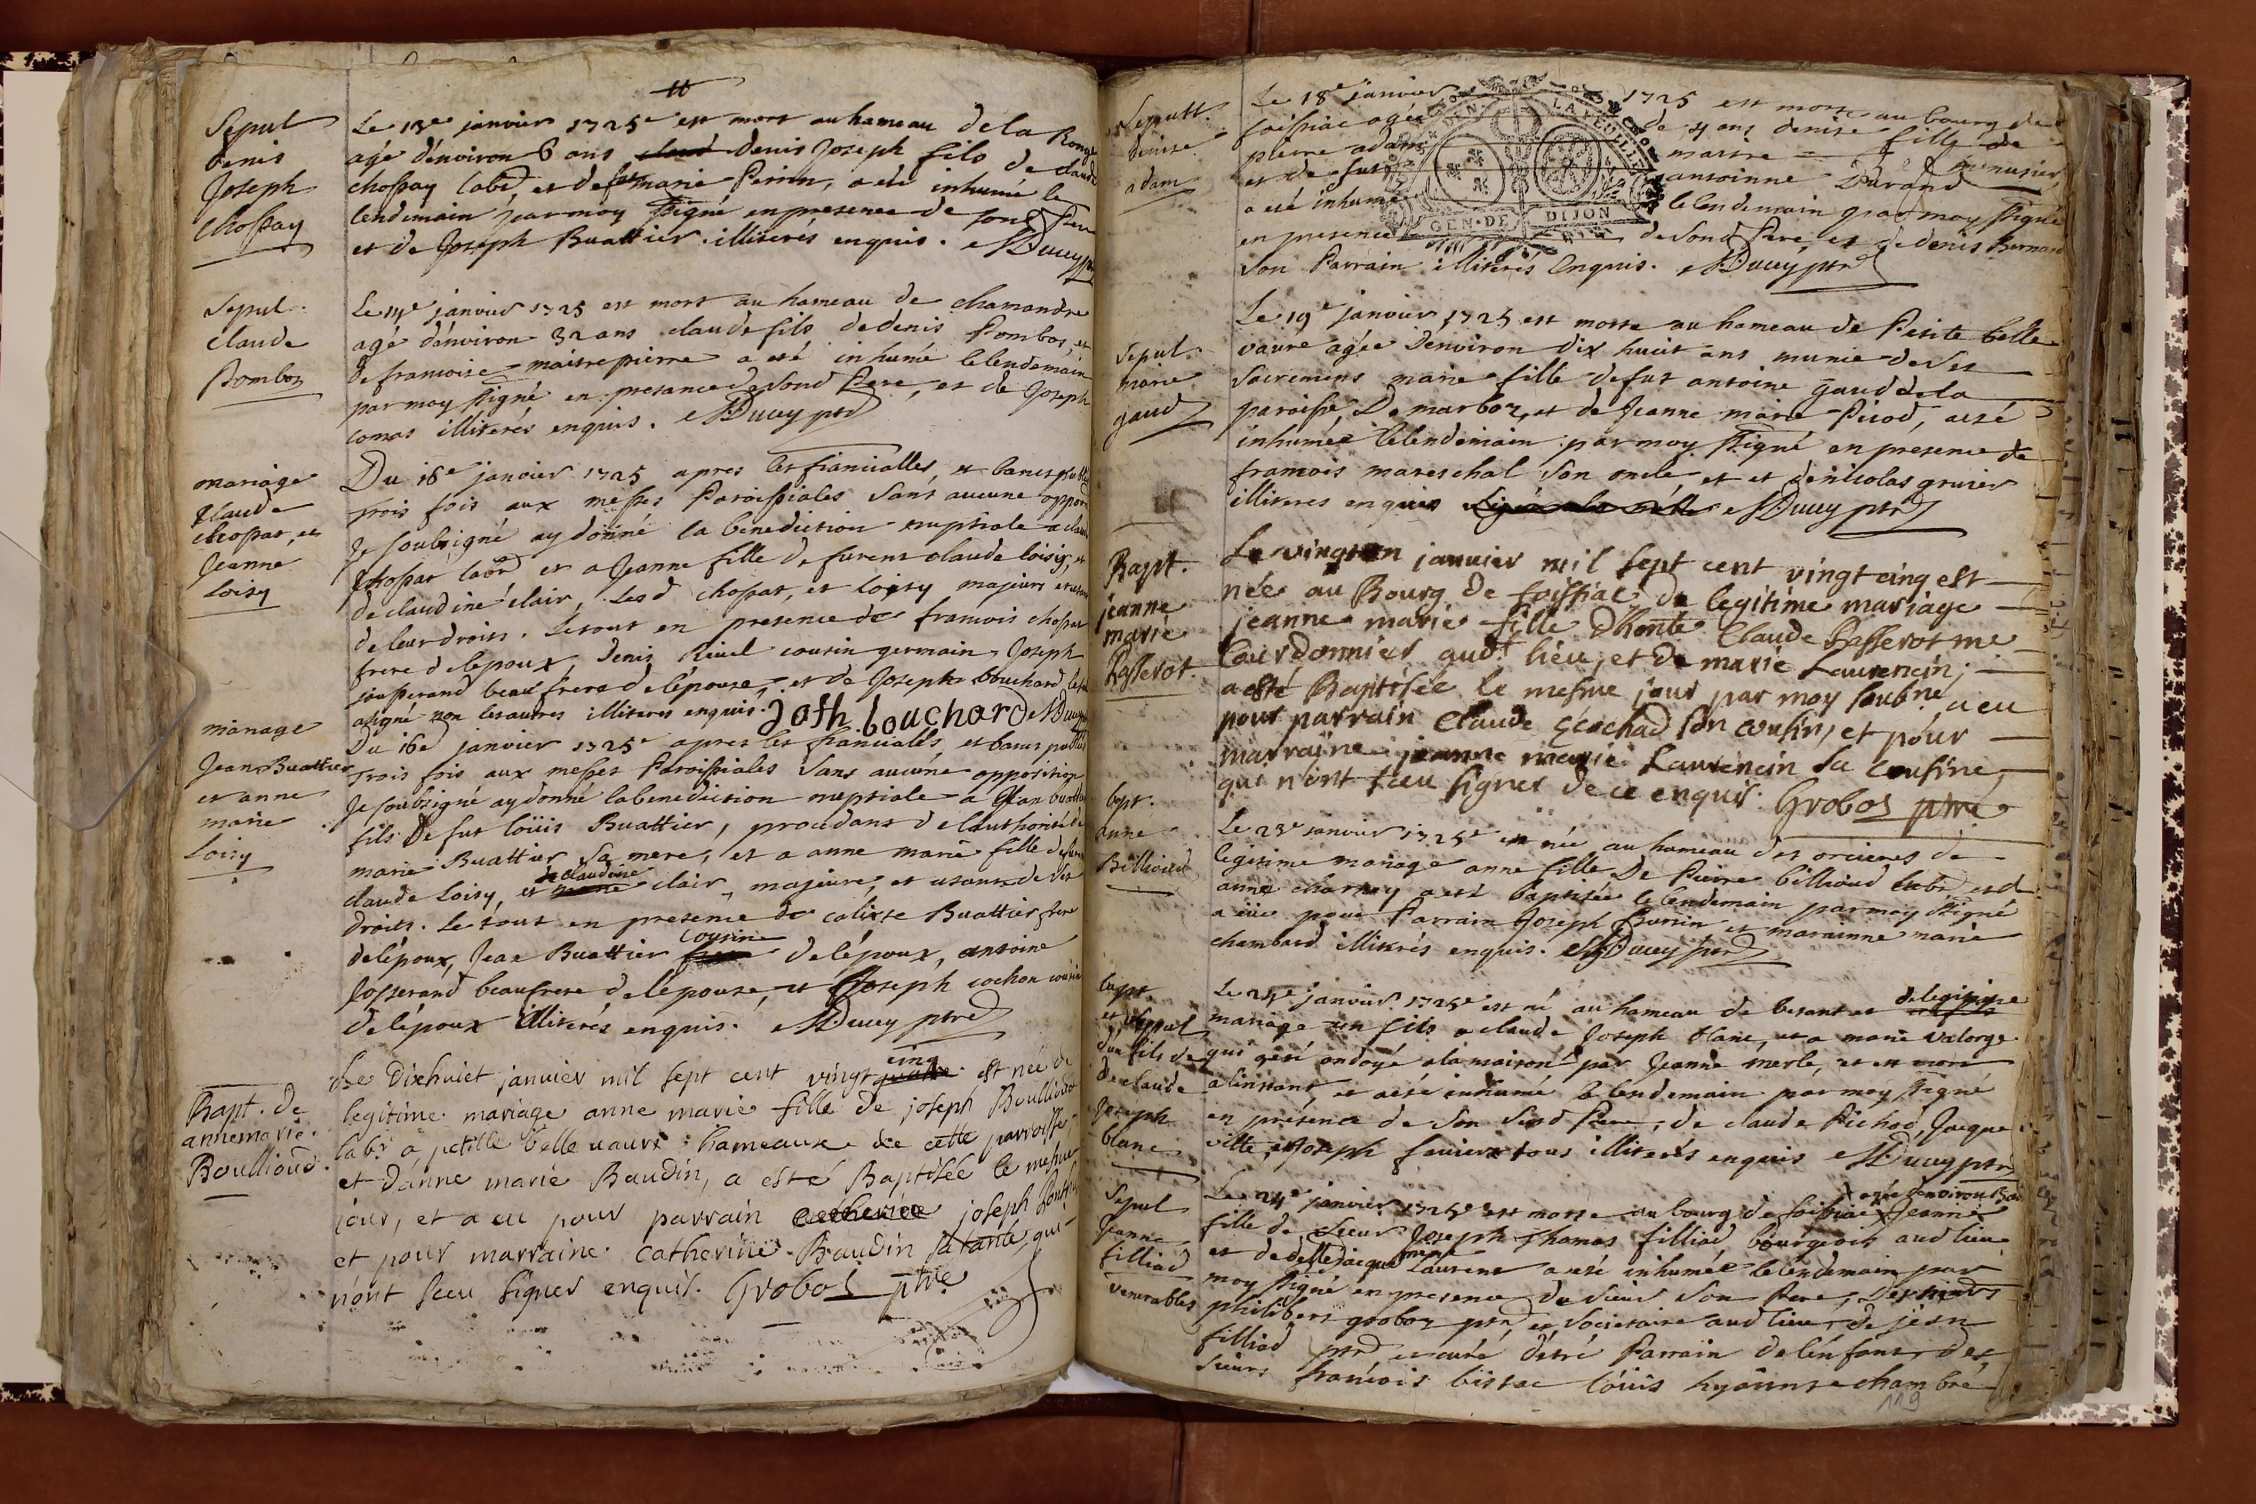 Sepul
denis
Joseph
chossay
Le 13e janvier 1725e est mort au hameau de la Ronge
agé d'environ 6 ans denis Joseph fils de claude
chossay labr et de marie Perrin, a eté inhumé le
lendemain par moy ssigné en presence de sond Pere
et de Joseph Buattier illiterés enquis. Ducey ptre
Sepul.
claude
Pombos
Le 14e janvier 1725 est mort au hameau de chamandre
agé d'environ 32 ans claude fils de denis Pombos, et
de francoise maistrepierre a eté inhumé le lendemain
par moy ssigné en presance de sond Pere, et de Joseph
comas illiterés enquis. Ducey ptre
mariage
claude
chossat, et
Jeanne
Loisy
Du 18e janvier 1725 apres les fiancialles, et bancs publiés
trois fois aux messes Paroissiales sans aucune oppon
Je soubsigné ay donné la benediction nuptiale a claude
chossat labr et a Jeanne fille de furent claude loisy, et
de claudine clair, Lesd chossat, et loisy majeurs et usants
de leur droits. Le tout en presence de francois chossat
frere de lepoux, denis Revel cousin germain, Joseph
josserand beaufrere de lépouse, et de Joseph bouchard lequel
a signé non les autres illiteres enquis. Joseph bouchard Ducey
mariage
Jean Buattier
et anne
marie
Loisy
Du 16e janvier 1725e apres les fiancialles, et bancs publiés
trois fois aux messes Paroissiales sans aucune opposition
Je soubsigné ay donné la benediction nuptiale a Jean buattier
fils de fut loüis Buattier, procedant de lauthorité de
marie Buattier sa mere, et a anne marie fille de furent
de claudine
claude Loisy, et clair, majeure, et usante de ses
droits. Le tout en presence de calixte Buattier frere
cousin
de lépoux, Jean Buattier de lépoux, antoine
Josserand beaufrere de lépouse, et Joseph cochon cousin
de lépoux illiterés enquis. Ducey ptre
Bapt. de
anne marie
Boullioud.
cinq
Le Dixhuict janvier mil sept cent vingt est née de
legitime mariage anne marie fille de joseph Boullioud
labr a petitte belle vaure hameaux de cette parroisse
et d'anne marie Baudin, a esté Baptisée le mesme
jour, et a eu pour parrain joseph
et pour marraine Catherine Baudin sa tante, qui
n'ont sceu signer enquis. Grobos ptre
Sepult.
denise
adam
Le 18e janvier 1725 est morte au bourg de
foissiac agée de 4 ans denise fille de
pierre adam marine menusier
et de fut antoinne Durand
a eté inhumée le lendemain par moy ssigné
en presence de sond Pere, et de denis Bernard
son Parrain illiterés enquis. Ducey ptre
GEN. DE DIJON
Sepul.
marie
gaud
Le 19e janvier 1725 est morte au hameau de Petite belle
vaure agée d'environ dix huit ans munie de ses
sacremens marie fille de fut antoine gaud de la
paroisse De marboz, et de Jeanne marie Picod, a eté
inhumée le lendemain par moy ssigné en presence de
francois mareschal son oncle, et et de nicolas gruier
illiteres enquis Ducey ptre
Bapt.
jeanne
marie
Passerot.
Le vingt un janvier mil sept cent vingt cinq est
née au Bourg de foissiac de legitime mariage
jeanne marie fille D'honte Claude Passerot me
Courdonnier aud.t lieu, et de marie Laurencin;
a esté Baptisée le mesme jour par moy soubné, a eu
pour parrain Claude Cochad son cousin, et pour
marraine jeanne marie Laurencin sa cousine
qui n'ont sceu signer de ce enquis. Grobos ptre
bapt.
anne
Billioud
Le 23e janvier 1725e est née au hameau des orcieres de
legitime mariage anne fille De Pierre billioud labr et d
anne charnay a eté baptisée le lendemain par moy ssigné
a eüe pour Parrain Joseph Perrin, et marainne marie
chambard illiterés enquis. Ducey ptre
bapt.
et Sepul
d'un fils de
de claude
Joseph
blanc
Le 24e janvier 1725e est né au hameau de besantet de legitime
mariage un fils a claude Joseph blanc, et a marie valorge
qui a eté ondoyé a la maison par Jeanne merle, et est mort
a l'instant, et a eté inhumé le lendemain par moy ssigné
en présence de son Pere, de claude Pichod, Jacque
vitte, et Joseph favier tous illiterés enquis Ducey ptre
Sepul
Jeanne
filliod
agée d'environ
Le 24e janvier 1725e est morte au bourg de foissiac Jeanne
fille de Sieur Joseph Thomas filliod, bourgeois aud lieu
et de delle Jacque Laurent a eté inhumée le lendemain par
moy ssigné en presence du sieur son Pere, des
venerables philibert grobos ptre et societaire aud lieu, de jean
filliod ptre et curé d'étré Parrain de lénfant, des
sieurs francois bissac loüis hyâinne chambré
119